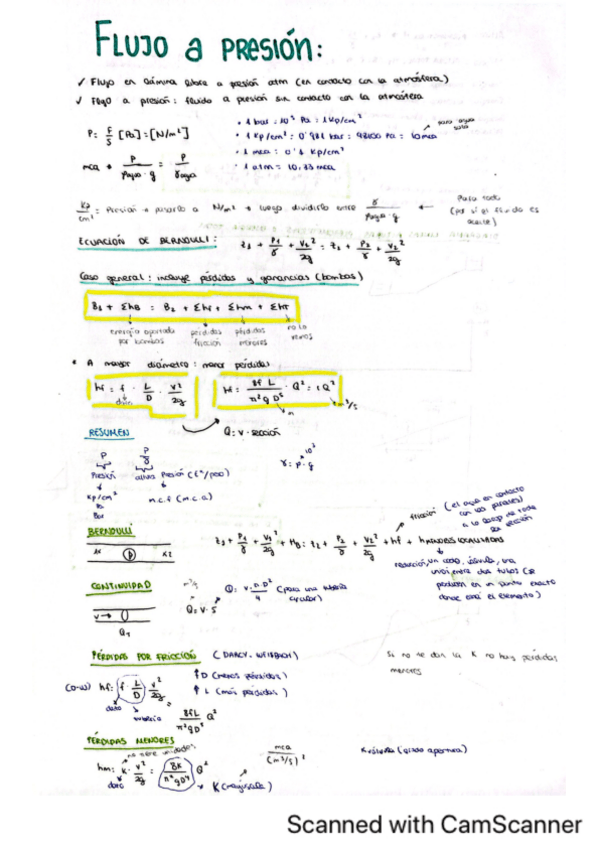 FLUJO A PRESIÓN:
✓ Flujo en lámina libre a presión atm (en contacto con la atmósfera)
✓ Flujo a presión: fluido a presión sin contacto con la atmósfera
P = F/S [Pa] = [N/m²]
• 1 bar = 10⁵ Pa = 1 Kp/cm²
• 1 Kp/cm² = 0'981 bar = 98100 Pa = 10 mca
para agua solo
• 1 mca = 0'1 Kp/cm²
• 1 atm = 10,33 mca
mca → P/(ρagua · g) = P/γagua
Kp/cm² = Presión → pasarlo a N/m² → luego dividirlo entre γ/(ρagua · g) ← Para todo
(por si el fluido es aceite)
ECUACIÓN DE BERNOULLI: z₁ + P₁/γ + v₁²/2g = z₂ + P₂/γ + v₂²/2g
Caso general: incluye pérdidas y ganancias (bombas)
B₁ + ΣhB = B₂ + Σhf + Σhm + Σht
energía aportada por bombas
pérdidas fricción
pérdidas menores
no lo vemos
* A mayor diámetro: menor pérdidas
hf = f · L/D · v²/2g
hf = 8fL/(π²gD⁵) · Q² = rQ²
m
m³/s
RESUMEN
Q = v · sección
P
Presión
Kp/cm²
Pa
Bar
P/γ
altura Presión
m.c.f (m.c.a)
γ = ρ · g
10³
BERNOULLI
z₁ + P₁/γ + v₁²/2g + HB = z₂ + P₂/γ + v₂²/2g + hf + hMENORES LOCALIZADAS
fricción (el agua en contacto con las paredes) a lo largo de toda su sección
reducción, un codo, válvula, una unión entre dos tubos (se producen en un punto exacto donde está el elemento)
CONTINUIDAD
m³/s
Q = v · S
Q = v·π·D²/4 (para una tubería circular)
v →
Q₁
PÉRDIDAS POR FRICCIÓN (DARCY-WEISBACH)
↑D (menos pérdidas)
↑L (más pérdidas)
Si no se dan la K no hay pérdidas menores
(D-W) hf = f · L/D · v²/2g
dato
tubería
= 8fL/(π²gD⁵) Q²
PÉRDIDAS MENORES
no tiene unidades
hm = K · v²/2g = 8K/(π²gD⁴) Q²
dato
K (mayúscula)
mca/(m³/s)²
Kválvula (grado apertura)
Scanned with CamScanner